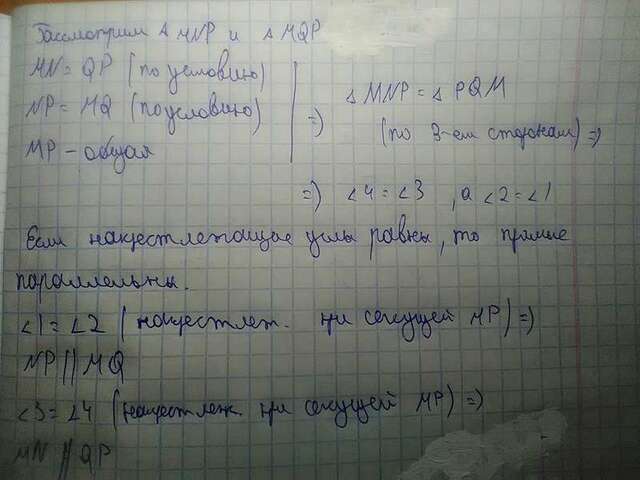 Рассмотрим ∆ MNP и ∆ MQP
MN = QP (по условию)
NP = MQ (по условию)
MP - общая
=> ∆ MNP = ∆ PQM
(по 3-ем сторонам) =>
=> ∠4 = ∠3, а ∠2 = ∠1
Если накрестлежащие углы равны, то прямые
параллельны.
∠1 = ∠2 (накрестлеж. при секущей MP) =>
NP || MQ
∠3 = ∠4 (накрестлеж. при секущей MP) =>
MN || QP